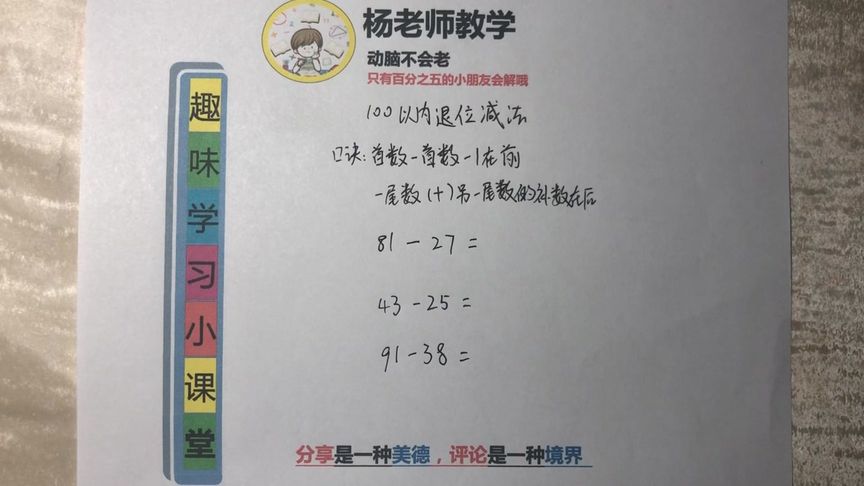 杨老师教学
动脑不会老
只有百分之五的小朋友会解哦
趣味学习小课堂
100以内退位减法
口诀:首数-首数-1在前
-尾数(+)另-尾数的补数在后
81-27=
43-25=
91-38=
分享是一种美德,评论是一种境界